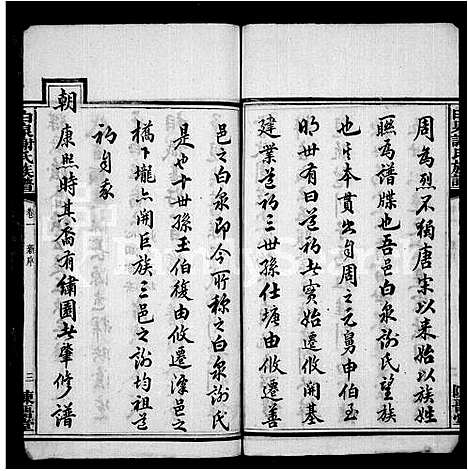 周為烈不獨唐宋以來始以族姓
縣為譜牒也吾邑白泉謝氏望族
也其本貫出自周之元舅申伯至
明世有曰荀初公實始遷開基
建業荀初三世孫仕塘由攸遷
邑之白泉即今所稱之白泉謝氏
是也十世孫玉伯復由攸遷濠邑之
橋下壠亦開巨族三邑之謝均祖荀
初自象
朝康熙時其裔有繡園公肇修譜
白泉謝氏族譜
卷一 新序
三 陳晉堂